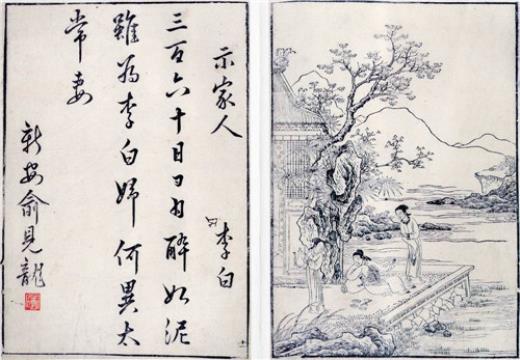 示家人 李白
三百六十日日日醉如泥
雖為李白婦何異太
常妻
新安俞見龍